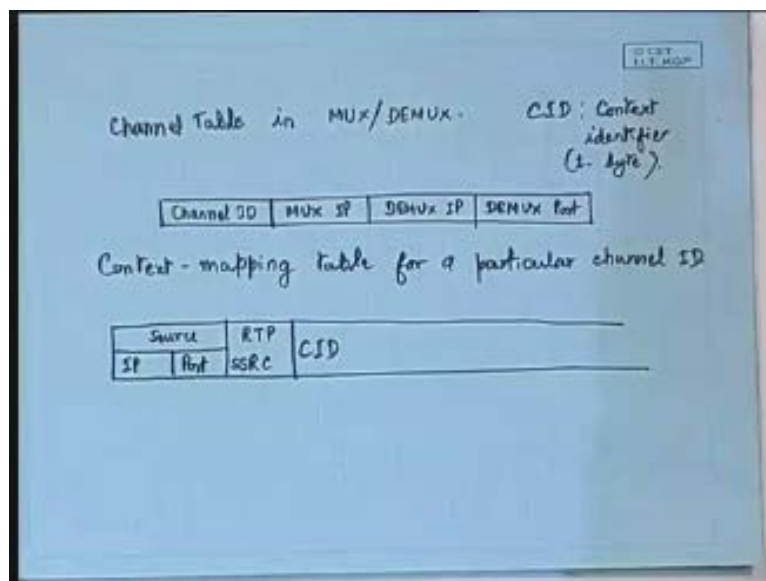 Channel Table in MUX/DEMUX. CID: Context
identifier
(1-byte).
Channel ID MUX IP DEMUX IP DEMUX Port
Context-mapping table for a particular channel ID
Source RTP CID
IP Port SSRC